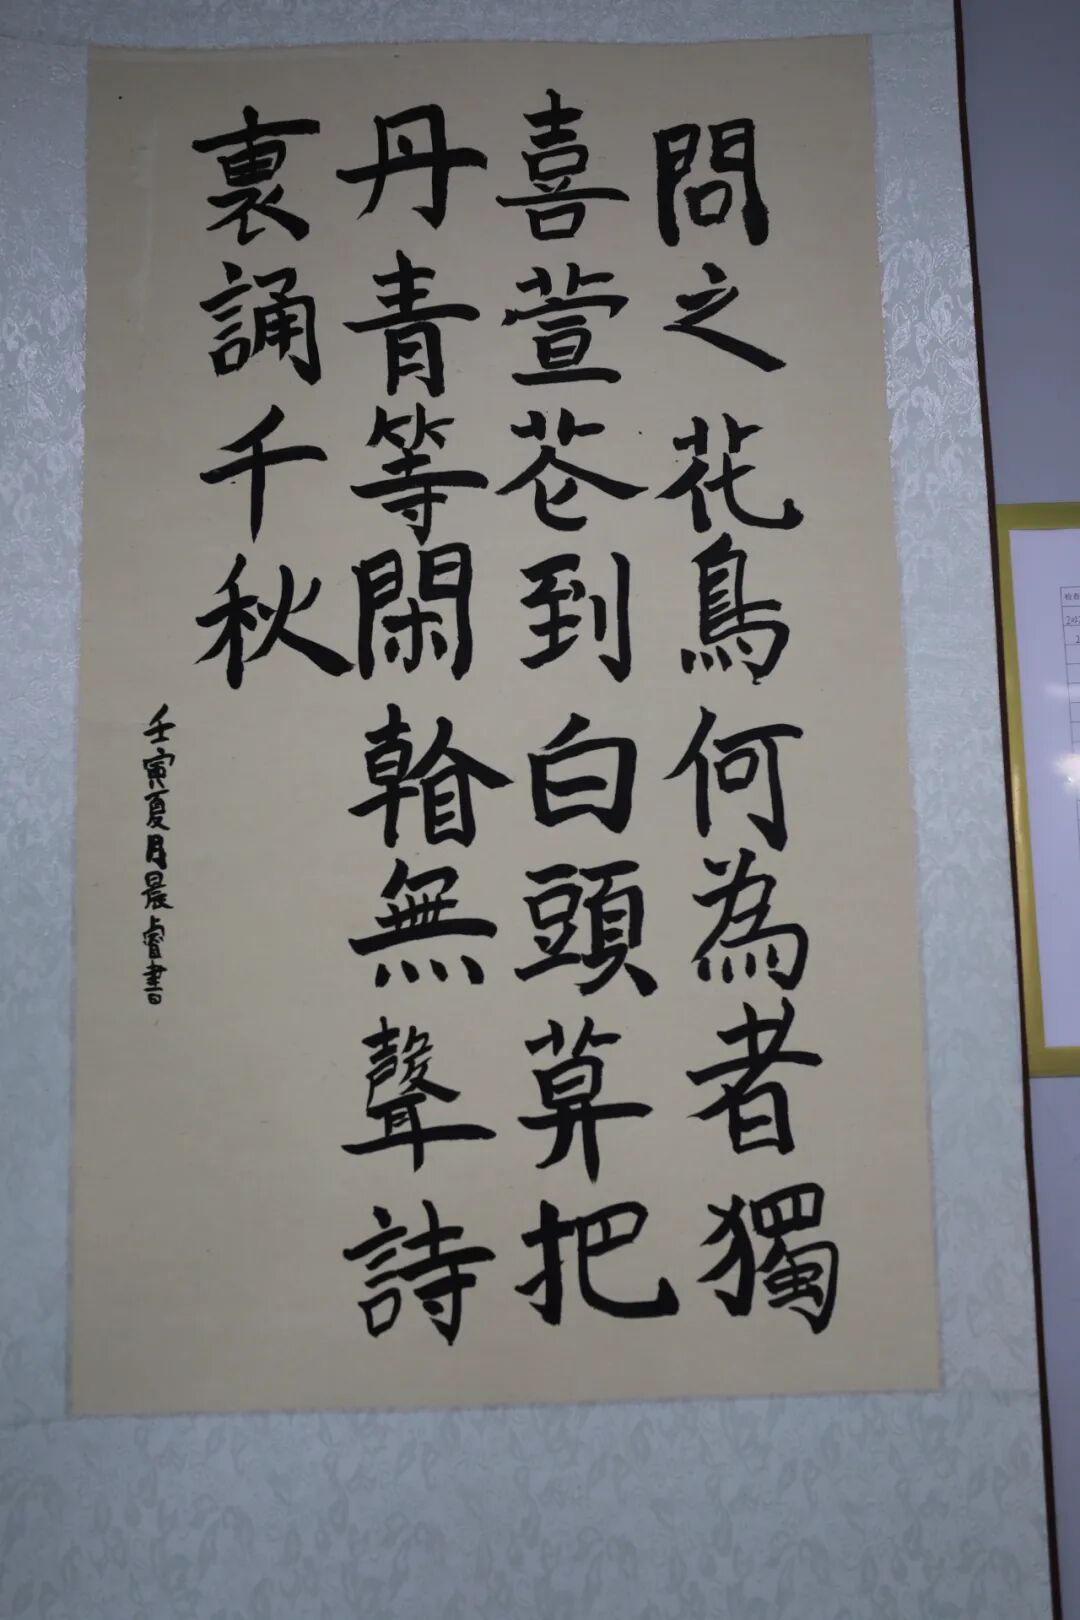 問之花鳥何為者獨
喜萱芲到白頭莫把
丹青等閑看無聲詩
裏誦千秋
壬寅夏月晨睿書